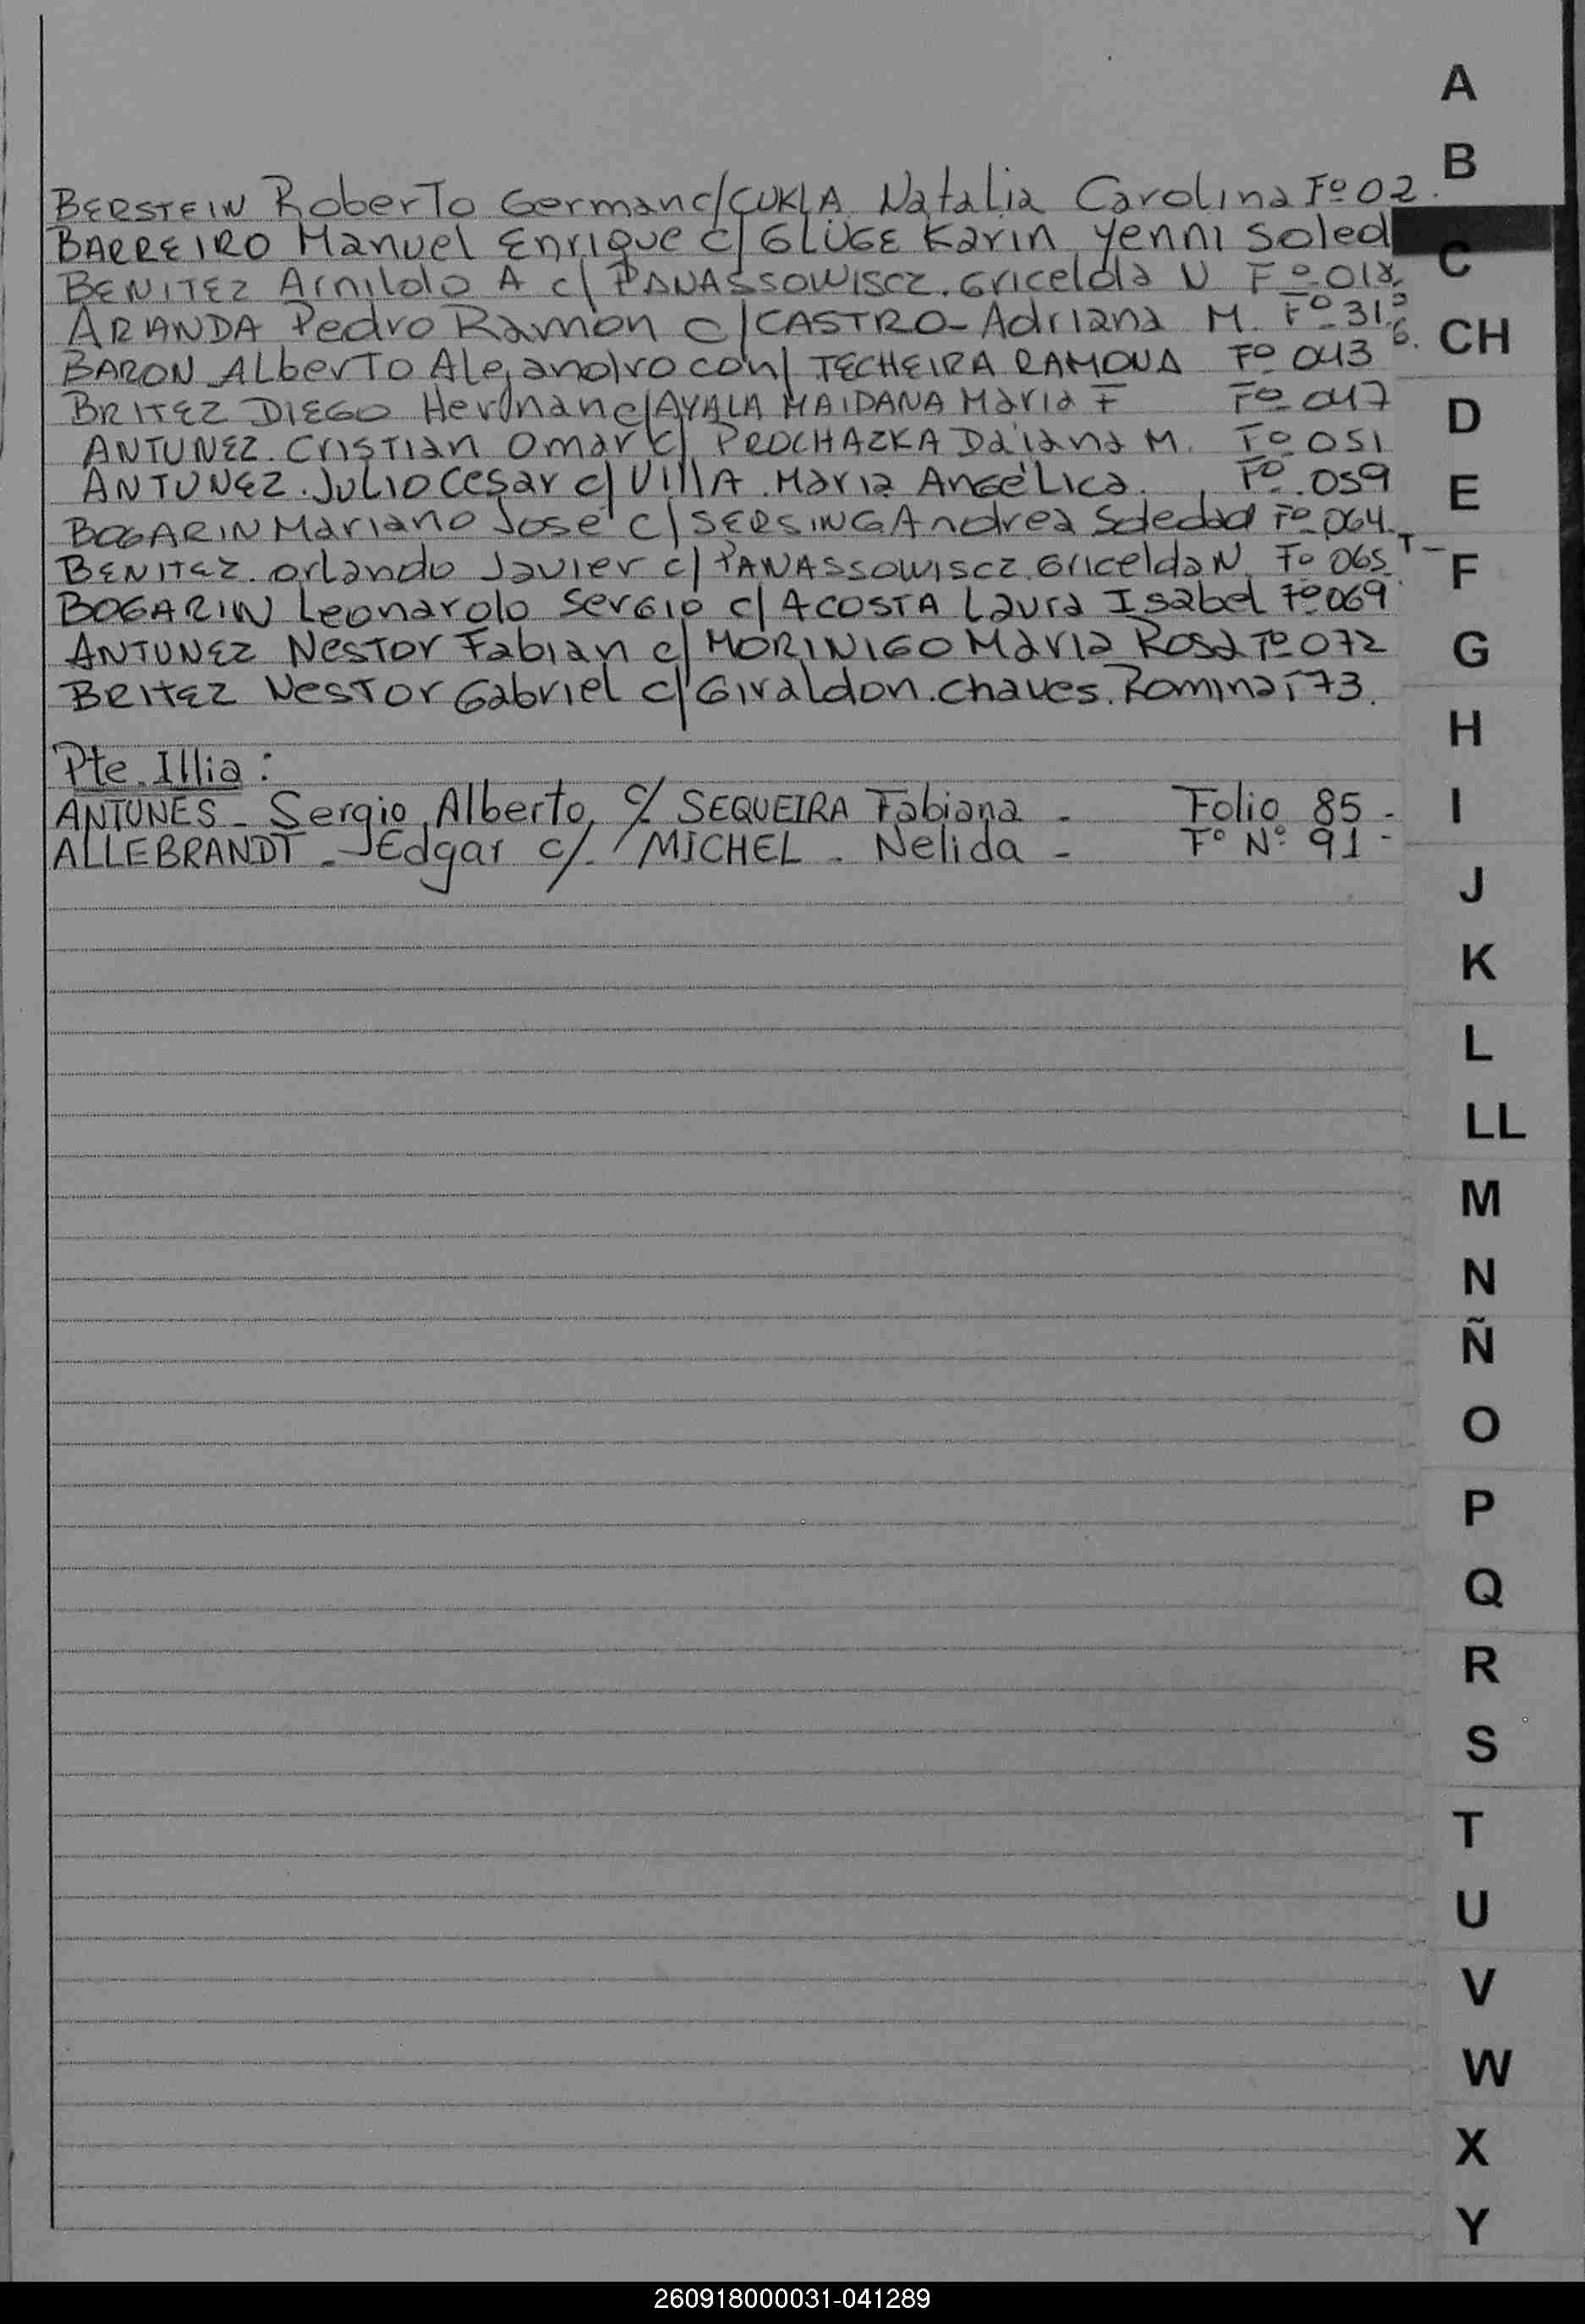 BERSTEIN Roberto German c/ CUKLA Natalia Carolina Fº 02.
BARREIRO Manuel Enrique c/ GLÜGE Karin Yenni Soled
BENITEZ Arnildo A c/ PANASSOWISCZ. Gricelda N Fº 018
ARANDA Pedro Ramon c/ CASTRO - Adriana M. Fº 31
BARON ALberTo Alejandro con/ TECHEIRA RAMONA Fº 043
BRITEZ DIEGO Hernan c/ AYALA MAIDANA Maria F Fº 047
ANTUNEZ. CrisTian Omar c/ PROCHAZKA Daiana M. Fº 051
ANTUNEZ. JuLio Cesar c/ VillA. Maria AngéLica. Fº. 059
BOGARIN Mariano José c/ SERSING Andrea Soledad Fº 064.
BENITEZ. orLando Javier c/ PANASSOWISCZ. Gricelda N. Fº 065
BOGARIN Leonardo Sergio c/ ACOSTA Laura Isabel Fº 069
ANTUNEZ NesTor Fabian c/ MORINIGO Maria Rosa Fº 072
BRITEZ NesTor Gabriel c/ Giraldon. Chaves. Romina F 73.
Pte. Illia:
ANTUNES - Sergio Alberto c/ SEQUEIRA Fabiana - Folio 85 -
ALLEBRANDT - Edgar c/. MICHEL - Nelida - Fº Nº 91 -
A
B
C
CH
D
E
F
G
H
I
J
K
L
LL
M
N
Ñ
O
P
Q
R
S
T
U
V
W
X
Y
260918000031-041289